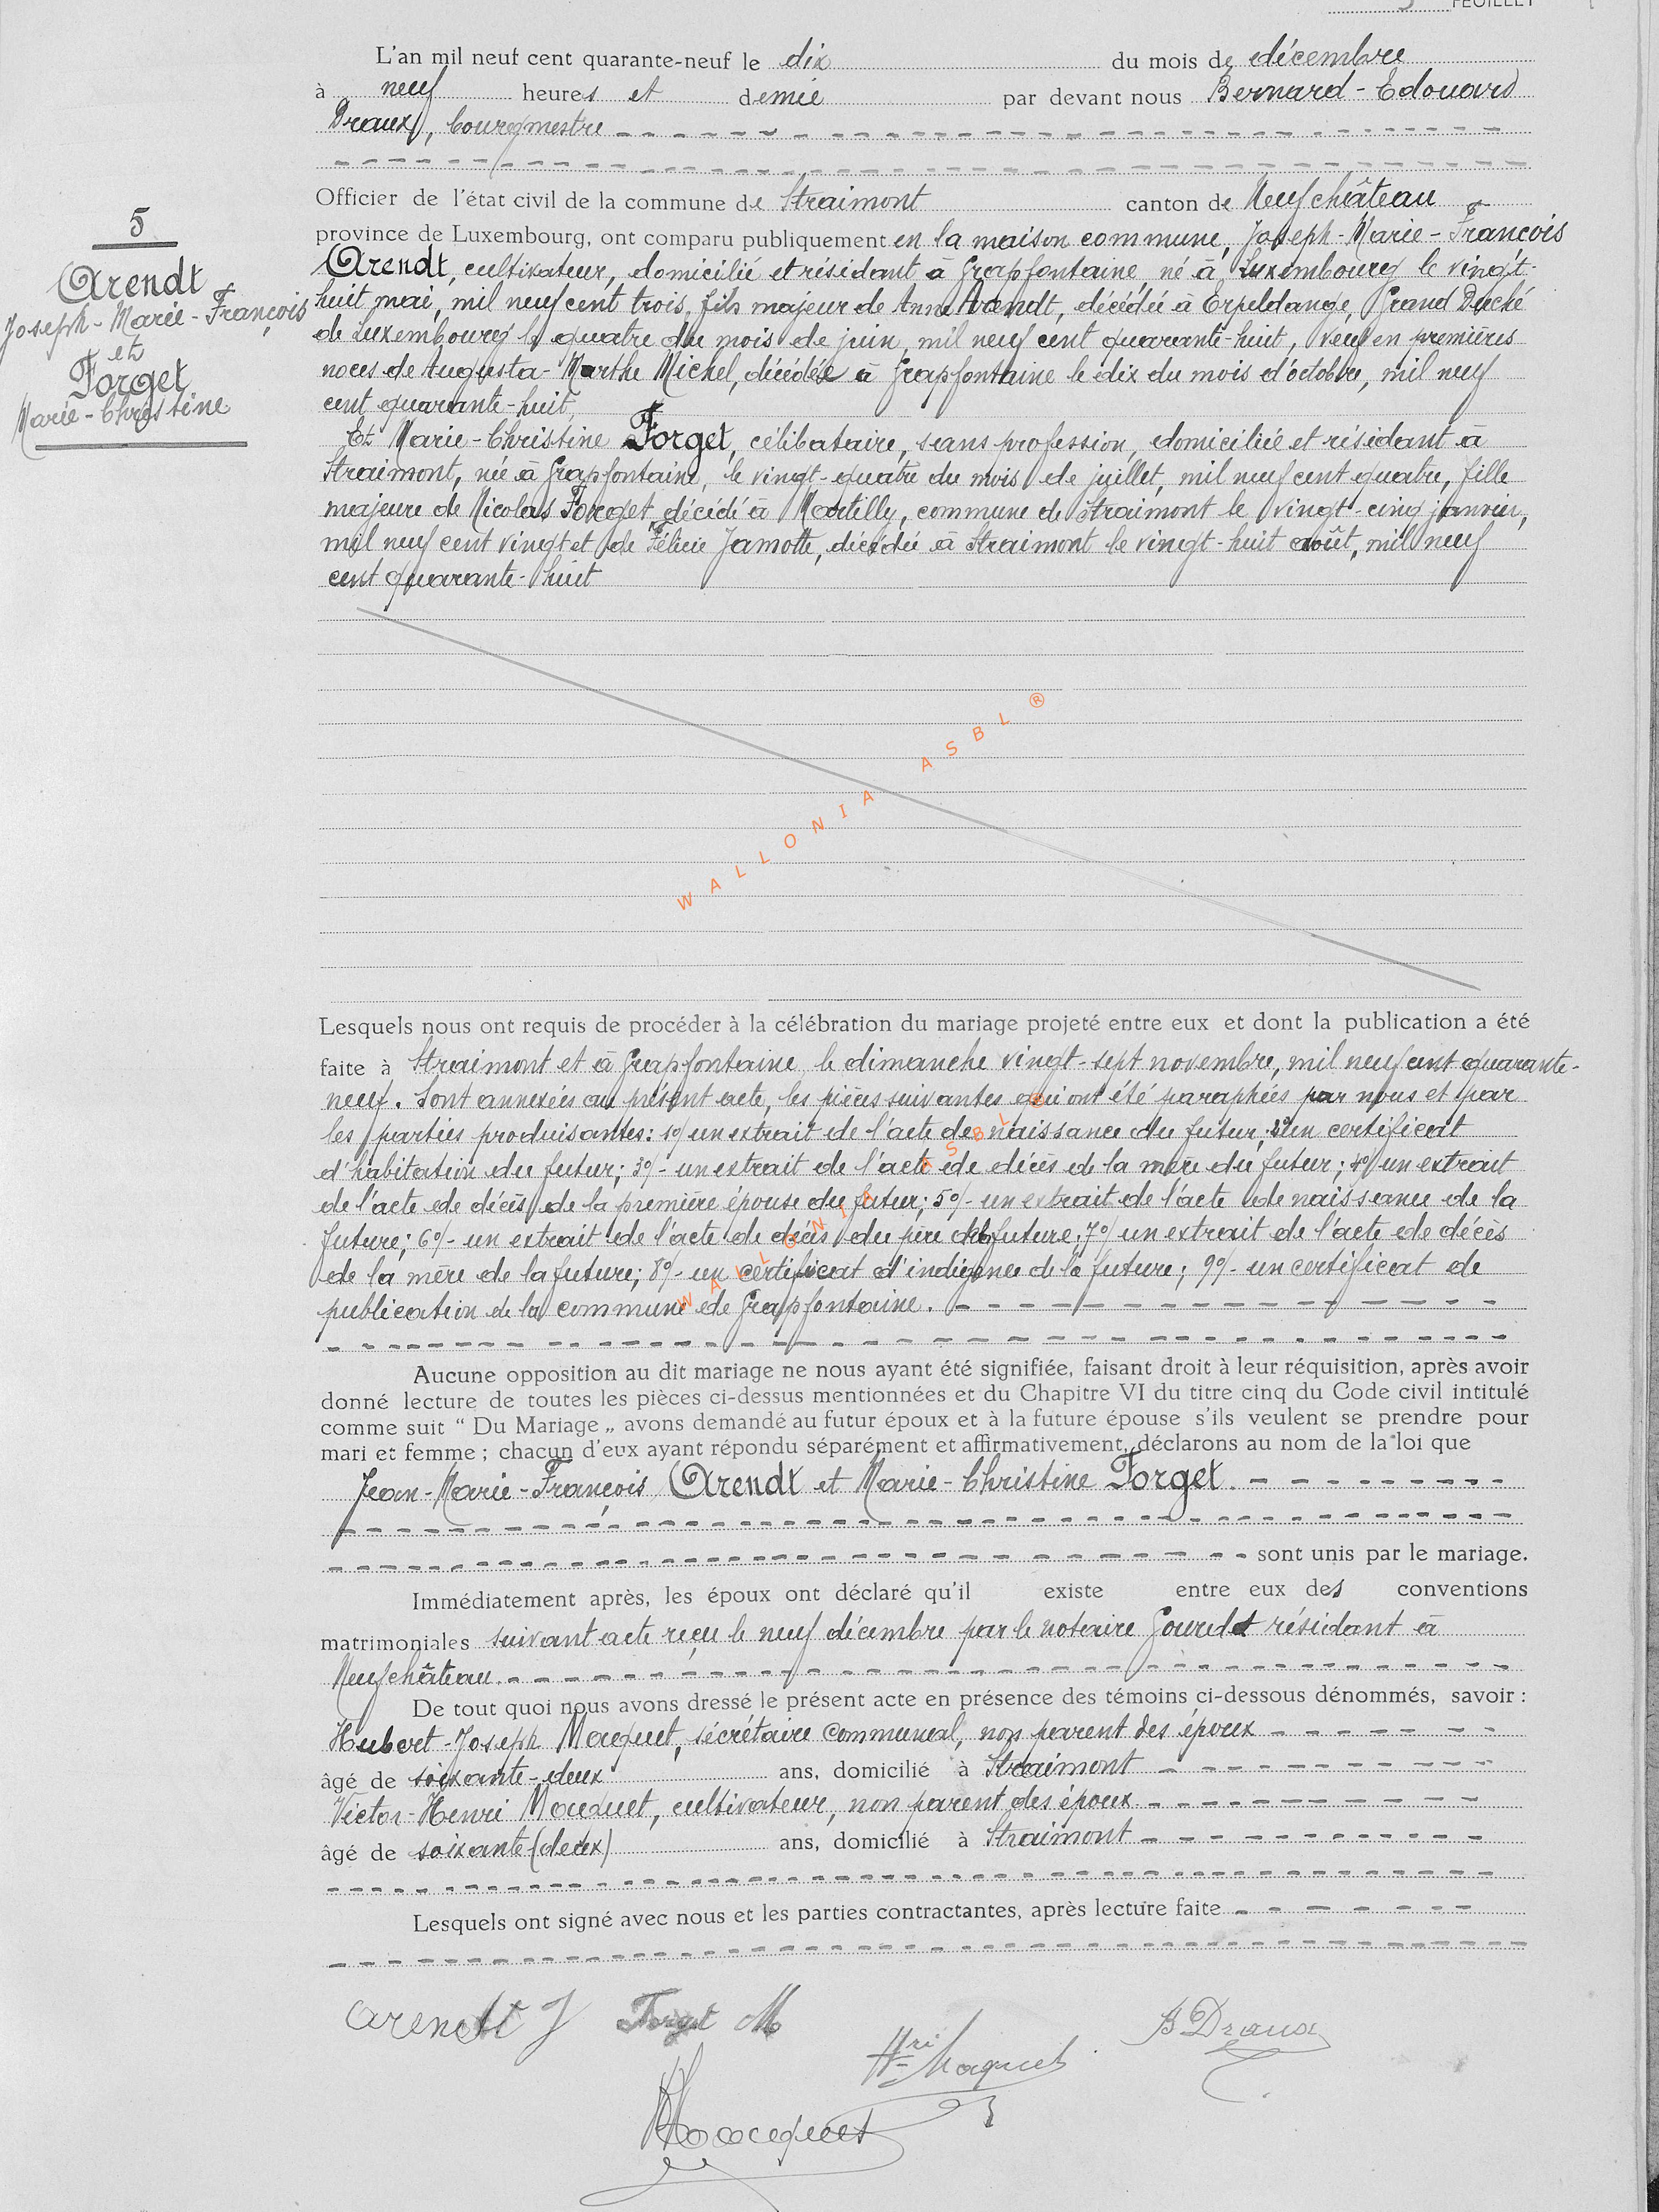 FEUILLET
L'an mil neuf cent quarante-neuf le dix du mois de décembre
à neuf heures et demie par devant nous Bernard-Edouard
Draux, bourgmestre
Officier de l'état civil de la commune de Straimont canton de Neufchâteau
province de Luxembourg, ont comparu publiquement en la maison commune, Joseph-Marie-François
Arendt, cultivateur, domicilié et résidant à Grapfontaine, né à Luxembourg le vingt-
huit mai, mil neuf cent trois, fils majeur de Anne Arendt, décédée à Erpeldange, Grand Duché
de Luxembourg le quatre du mois de juin, mil neuf cent quarante-huit, veuf en premières
noces de Augusta-Marthe Michel, décédée à Grapfontaine le dix du mois d'octobre, mil neuf
cent quarante-huit,
Et Marie-Christine Forget, célibataire, sans profession, domiciliée et résidant à
Straimont, née à Grapfontaine, le vingt-quatre du mois de juillet, mil neuf cent quatre, fille
majeure de Nicolas Forget, décédé à Martilly, commune de Straimont le vingt-cinq janvier,
mil neuf cent vingt et de Félicie Jamotte, décédée à Straimont le vingt-huit août, mil neuf
cent quarante-huit
5
Arendt
Joseph-Marie-François
et
Forget
Marie-Christine
WALLONIA ASBL ®
Lesquels nous ont requis de procéder à la célébration du mariage projeté entre eux et dont la publication a été
faite à Straimont et à Grapfontaine le dimanche vingt-sept novembre, mil neuf cent quarante-
neuf. Sont annexées au présent acte, les pièces suivantes qui ont été paraphées par nous et par
les parties produisantes: 1°/ un extrait de l'acte de naissance du futur; 2°/ un certificat
d'habitation du futur; 3°/- un extrait de l'acte de décès de la mère du futur; 4°/ un extrait
de l'acte de décès de la première épouse du futur; 5°/- un extrait de l'acte de naissance de la
future; 6°/- un extrait de l'acte de décès du père de la future; 7°/ un extrait de l'acte de décès
de la mère de la future; 8°/- un certificat d'indigence de la future; 9°/- un certificat de
publication de la commune de Grapfontaine.
WALLONIA ASBL ®
Aucune opposition au dit mariage ne nous ayant été signifiée, faisant droit à leur réquisition, après avoir
donné lecture de toutes les pièces ci-dessus mentionnées et du Chapitre VI du titre cinq du Code civil intitulé
comme suit “ Du Mariage „ avons demandé au futur époux et à la future épouse s'ils veulent se prendre pour
mari et femme ; chacun d'eux ayant répondu séparément et affirmativement, déclarons au nom de la loi que
Jean-Marie-François Arendt et Marie-Christine Forget.
sont unis par le mariage.
Immédiatement après, les époux ont déclaré qu'il existe entre eux des conventions
matrimoniales suivant acte reçu le neuf décembre par le notaire Gourdet résidant à
Neufchâteau.
De tout quoi nous avons dressé le présent acte en présence des témoins ci-dessous dénommés, savoir :
Hubert-Joseph Macquet, sécrétaire communal, non parent des époux
âgé de soixante-deux ans, domicilié à Straimont
Victor-Henri Macquet, cultivateur, non parent des époux
âgé de soixante (deux) ans, domicilié à Straimont
Lesquels ont signé avec nous et les parties contractantes, après lecture faite
Arendt J Forget M
Hri Maquet
B Draux
HMacquet